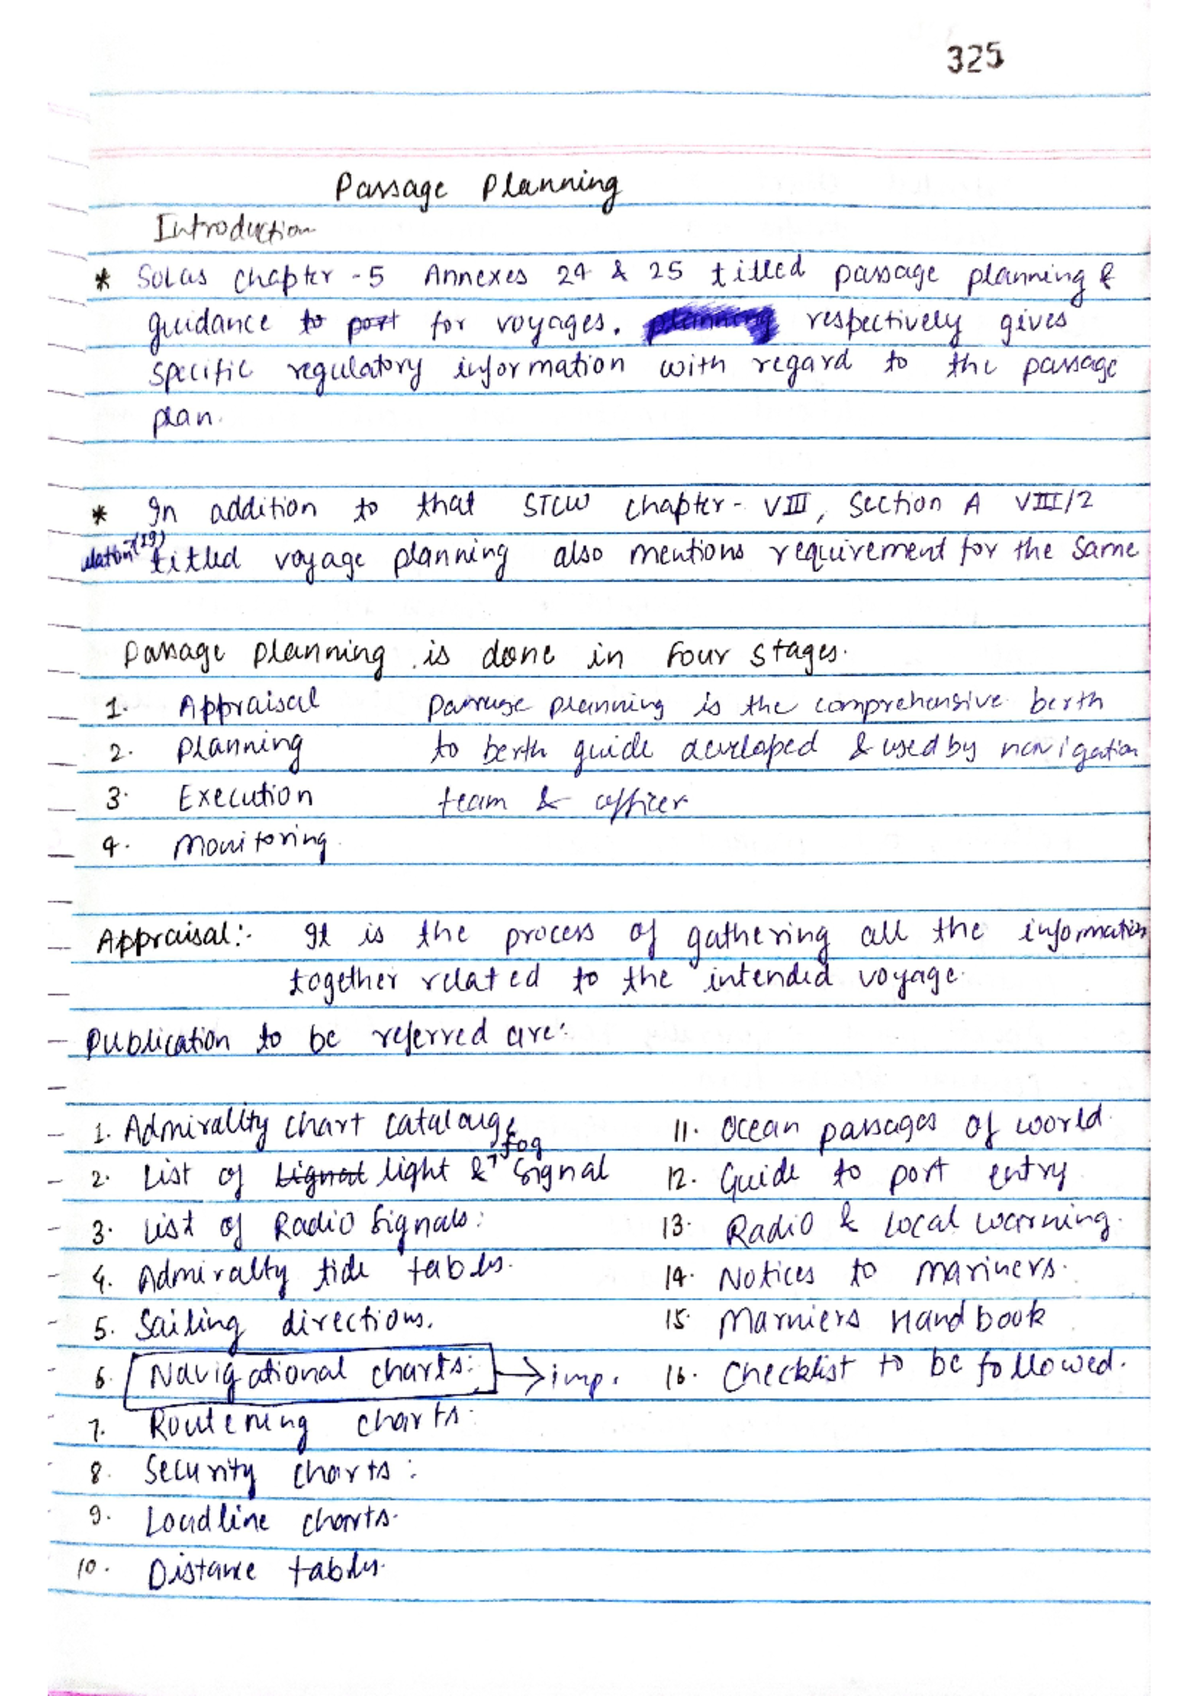 325
Passage Planning
Introduction
* Solas chapter -5 Annexes 24 & 25 titled passage planning &
guidance to port for voyages. planning respectively gives
specific regulatory information with regard to the passage
plan.
* In addition to that STCW chapter - VIII, Section A VIII/2
titled voyage planning also mentions requirement for the same
Passage planning is done in Four stages.
1. Appraisal Passage planning is the comprehensive berth
2. Planning to berth guide developed & used by navigation
3. Execution team & officer
4. Monitoring
Appraisal:- It is the process of gathering all the information
together related to the intended voyage.
Publication to be referred are:
1. Admirallty chart catalouge 11. Ocean passages of world.
2. List of Lignal light & fog signal 12. Guide to port entry
3. List of Radio Signals: 13. Radio & local warning.
4. Admiralty tide tables. 14. Notices to mariners.
5. Sailing directions. 15. Marniers Handbook
6. Navigational charts: → imp. 16. Checklist to be followed.
7. Routening charts.
8. Security charts:
9. Loadline charts.
10. Distance tables.